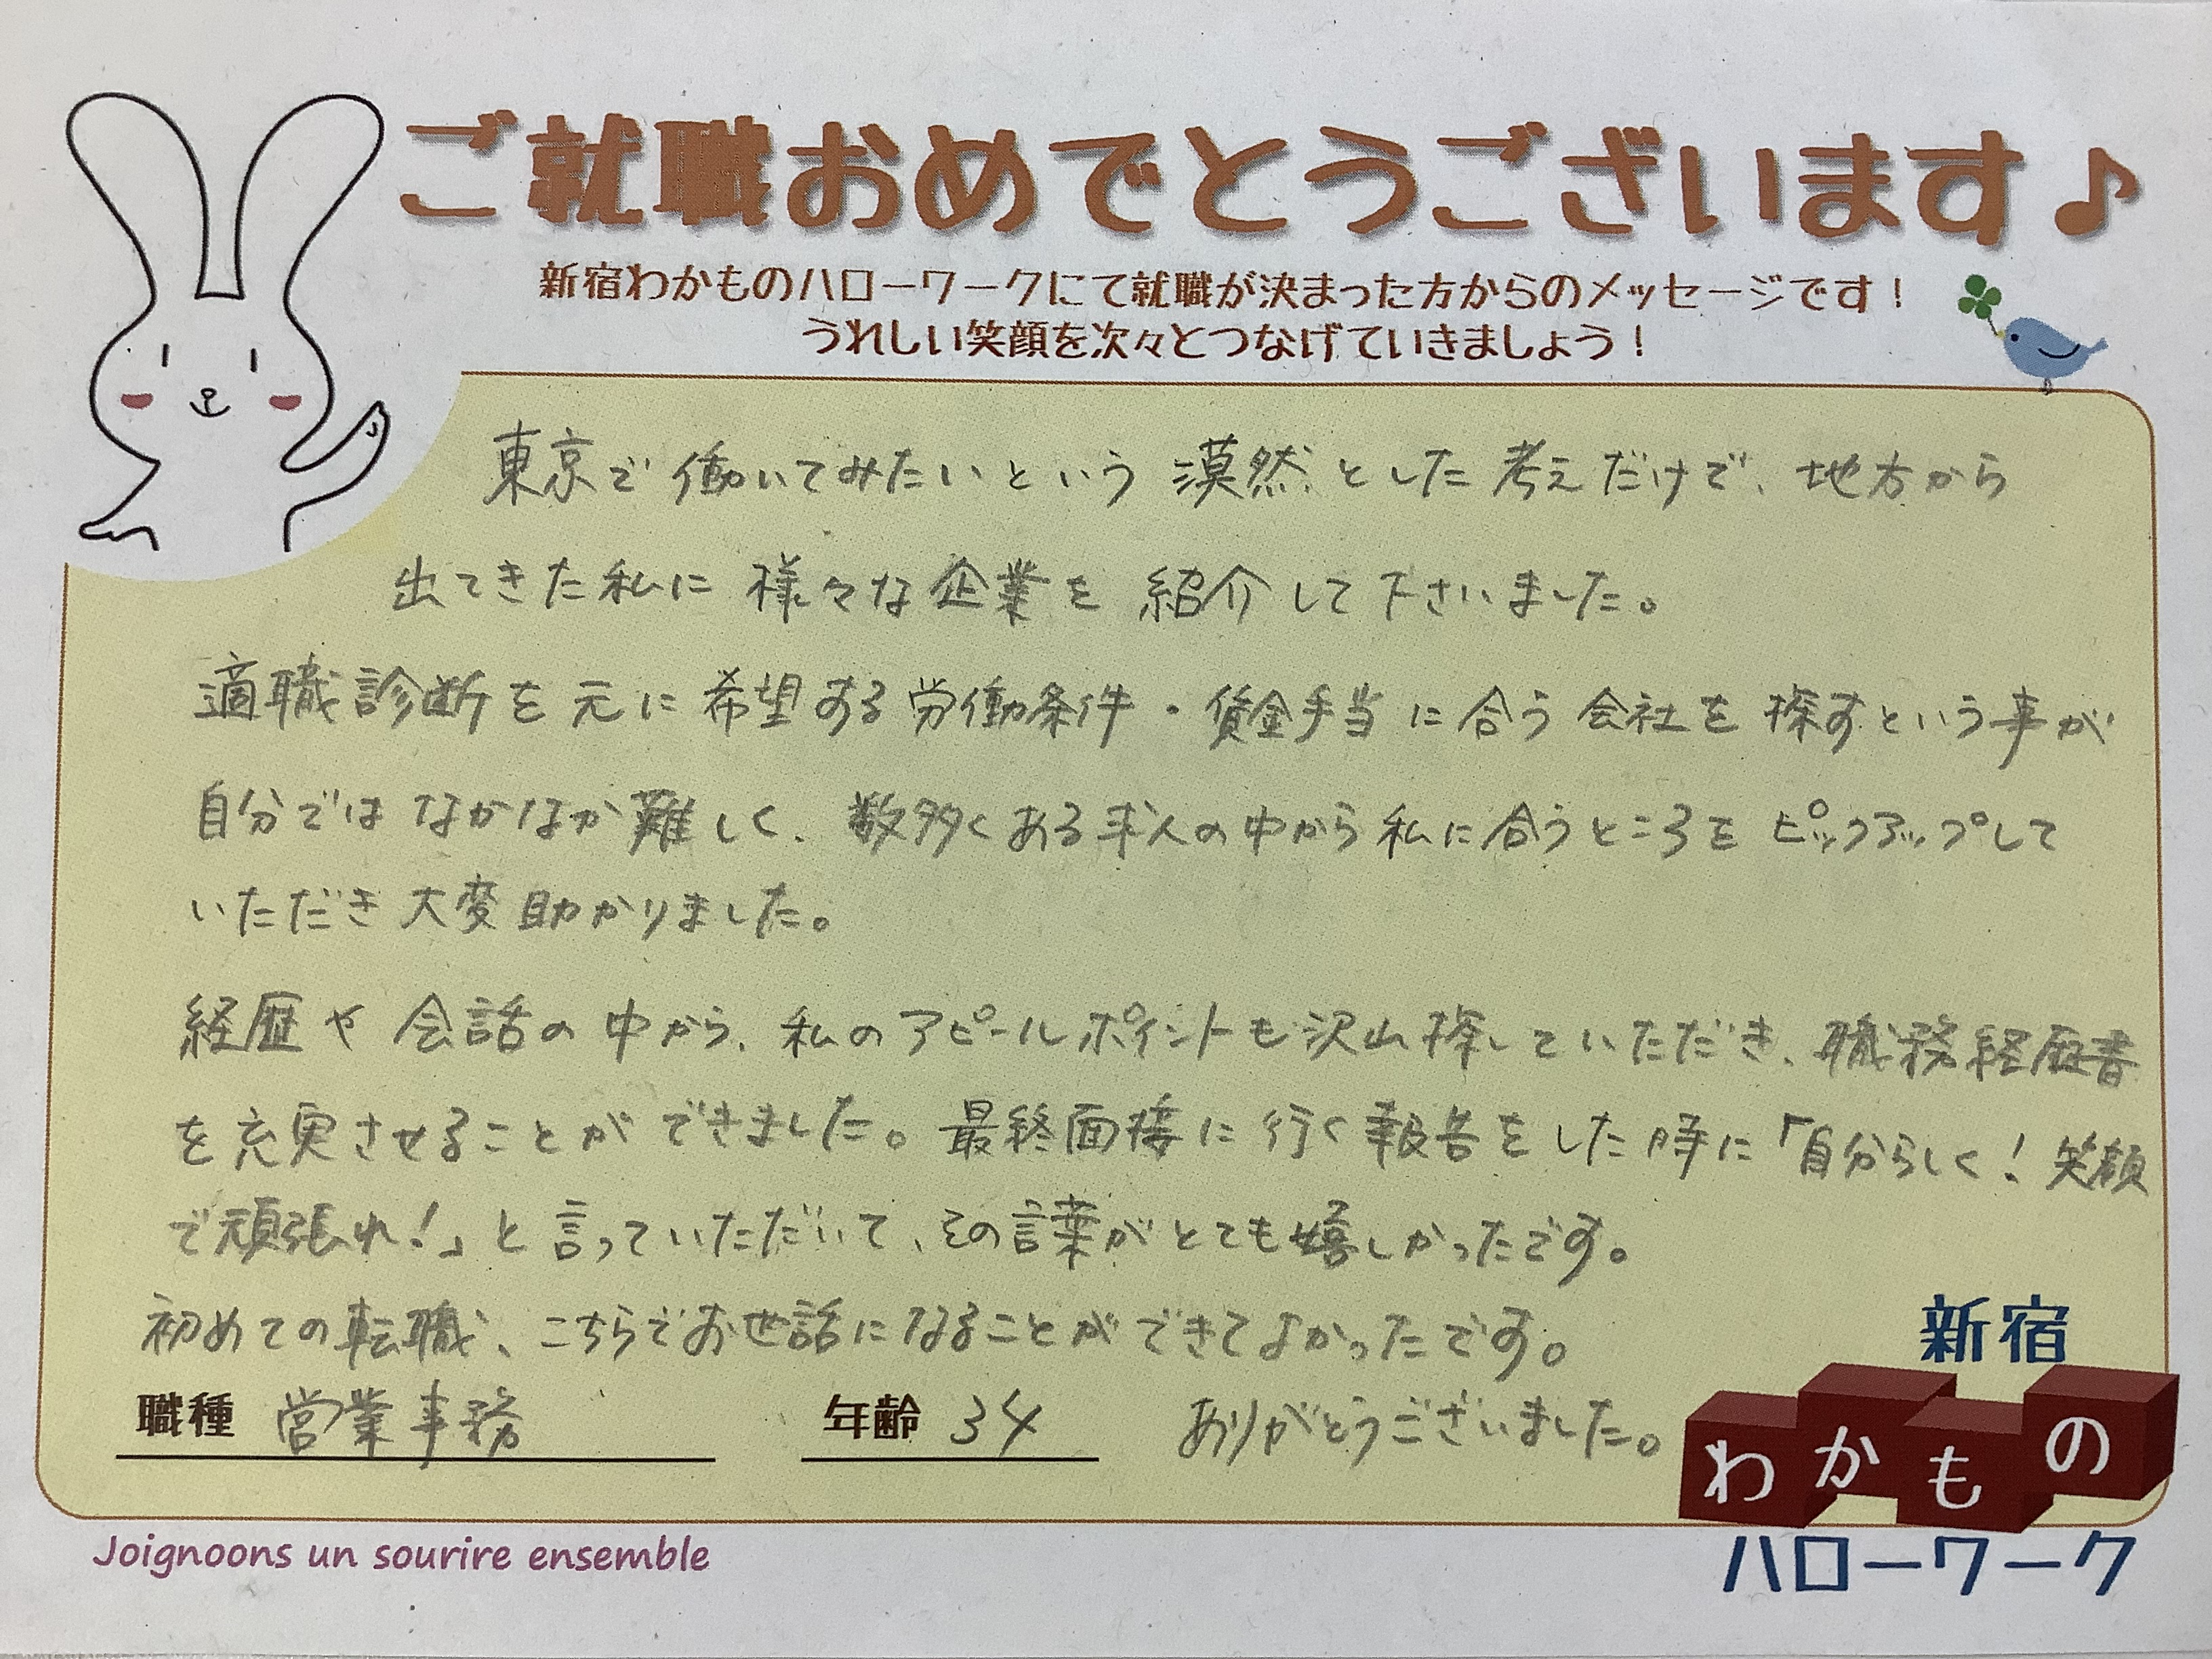 ご就職おめでとうございます♪
新宿わかものハローワークにて就職が決まった方からのメッセージです！
うれしい笑顔を次々とつなげていきましょう！
東京で働いてみたいという漠然とした考えだけで、地方から
出てきた私に様々な企業を紹介して下さいました。
適職診断を元に希望する労働条件・賃金手当に合う会社を探すという事が
自分ではなかなか難しく、数多くある求人の中から私に合うところをピックアップして
いただき大変助かりました。
経歴や会話の中から、私のアピールポイントも沢山探していただき、職務経歴書
を充実させることができました。最終面接に行く報告をした時に「自分らしく！笑顔
で頑張れ！」と言っていただいて、その言葉がとても嬉しかったです。
初めての転職、こちらでお世話になることができてよかったです。
職種 営業事務 年齢 34 ありがとうございました。
新宿
わかもの
ハローワーク
Joignoons un sourire ensemble